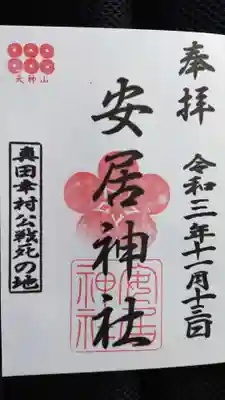 奉拝
令和三年十一月十三日
安居神社
安居神社
天神山
真田幸村公戦死の地